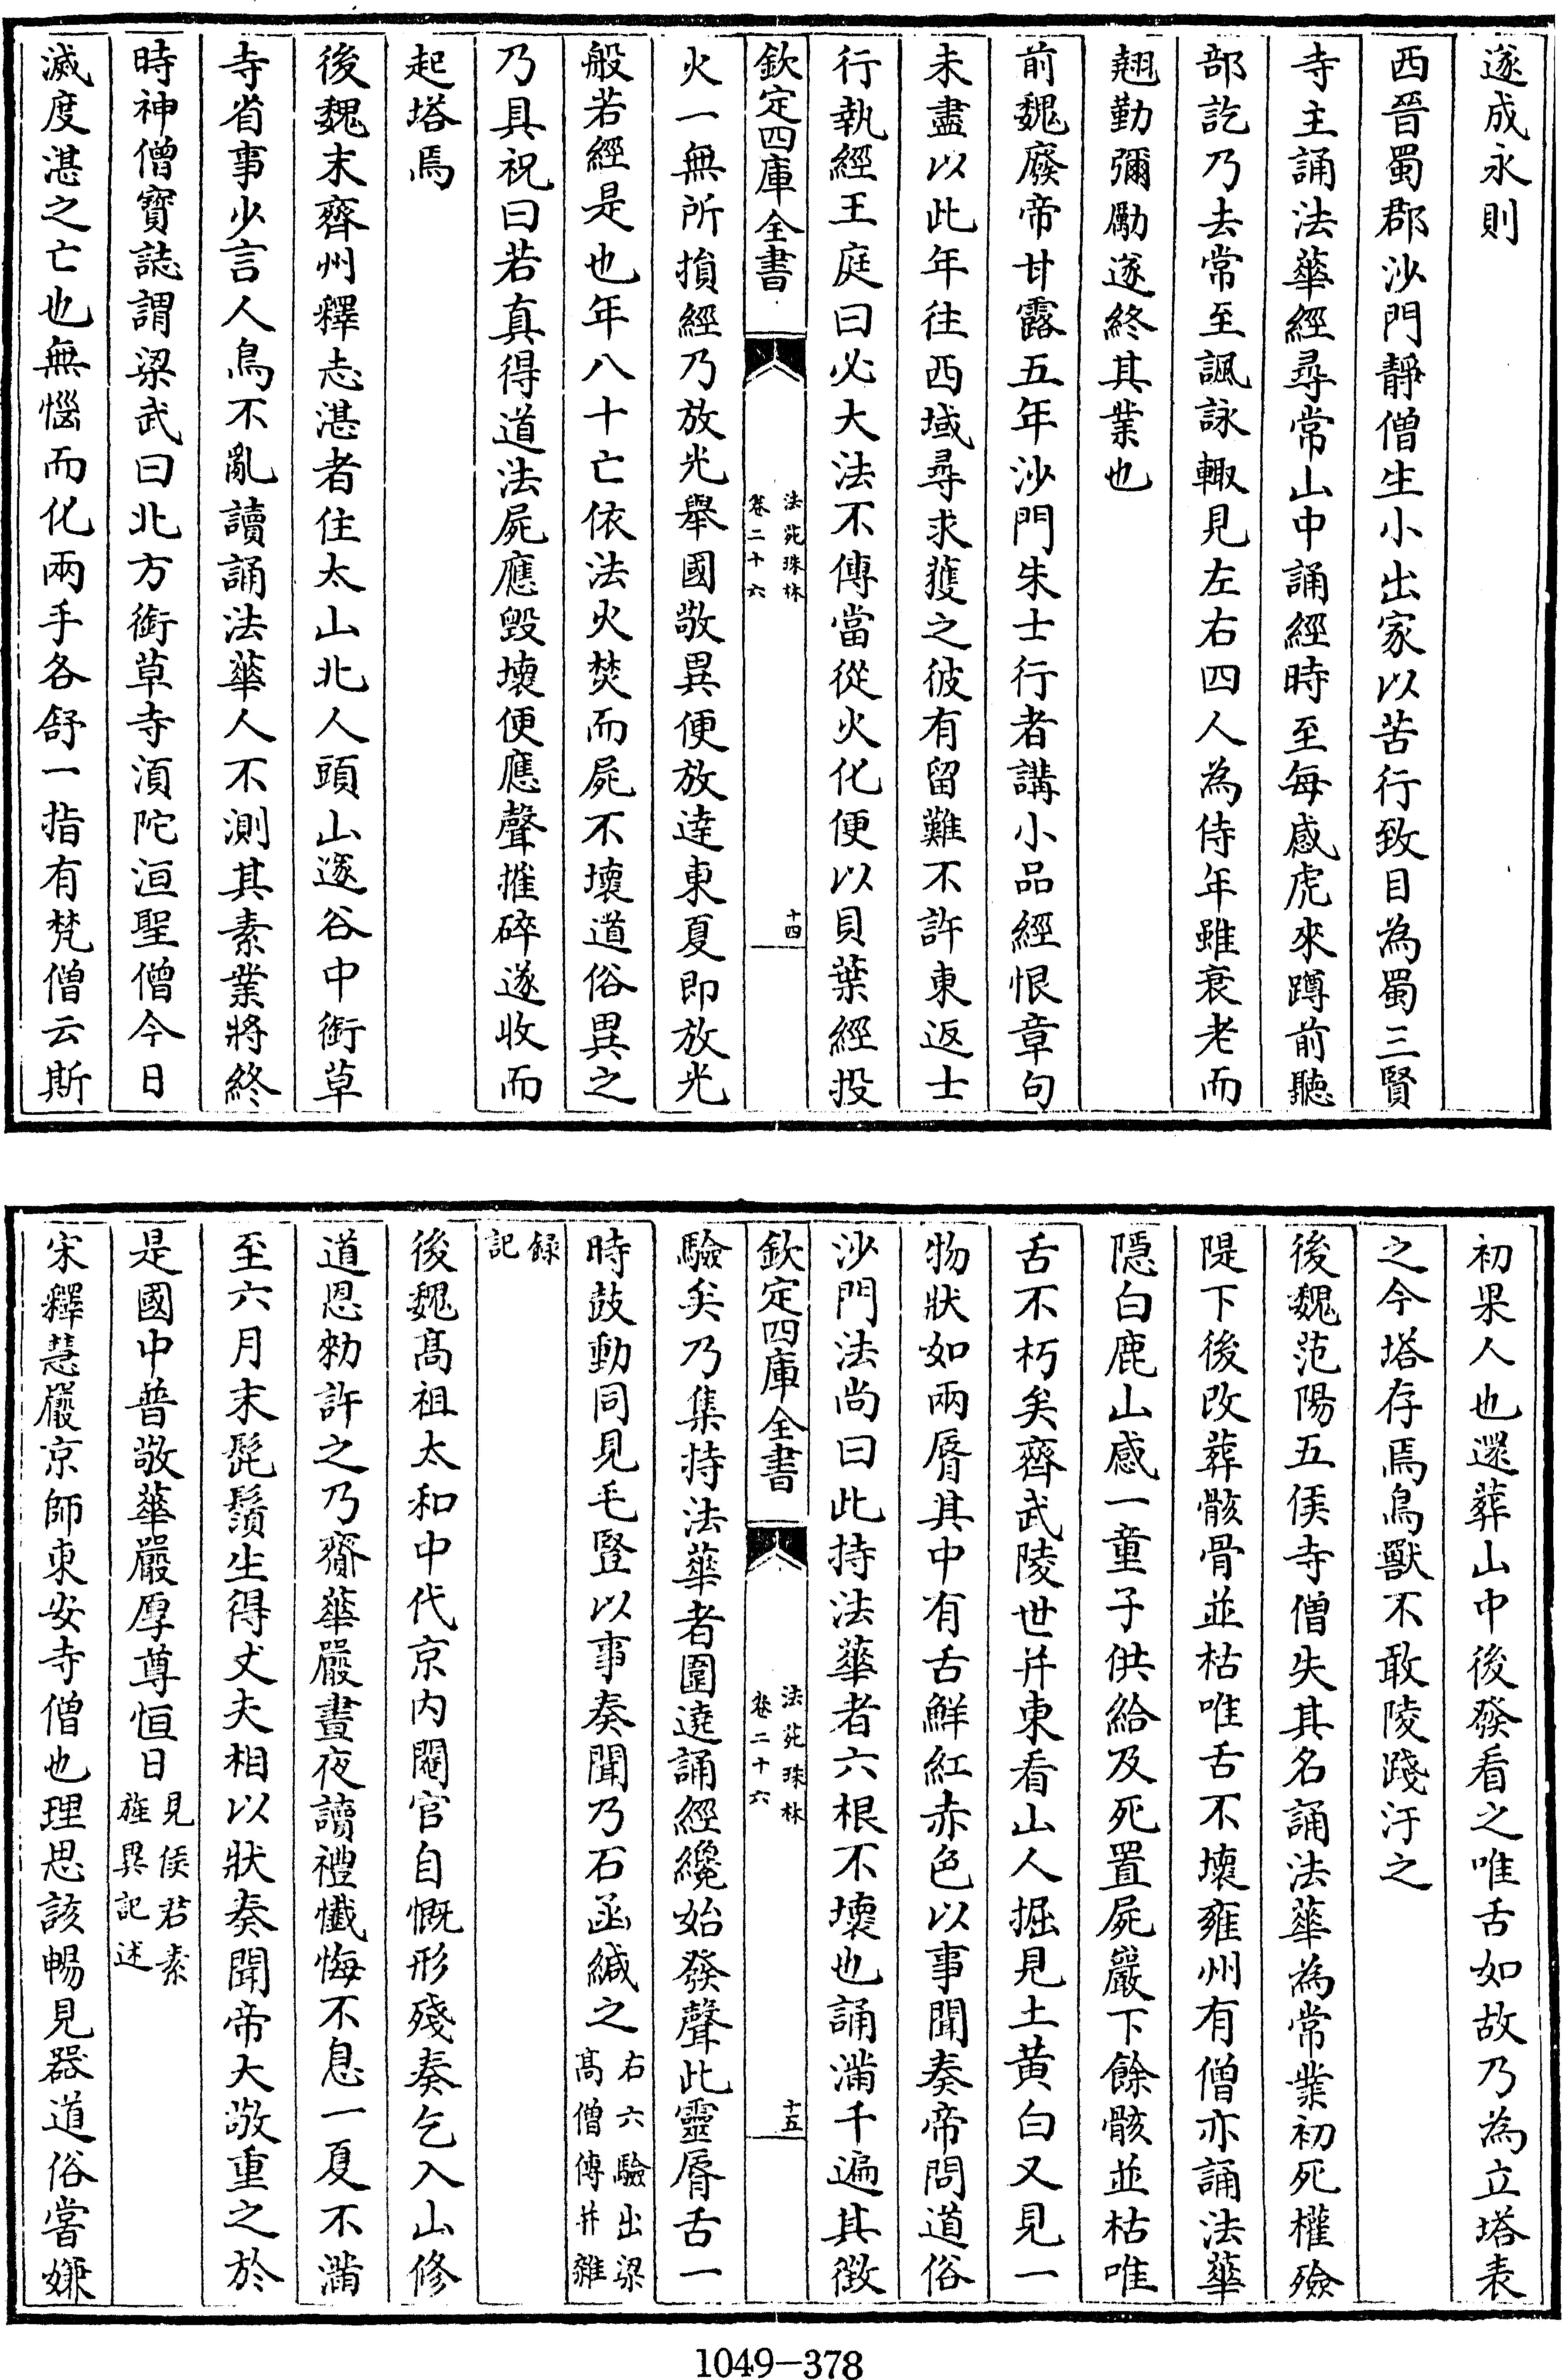 遂成永則
西晉蜀郡沙門靜僧生小出家以苦行致目為蜀三賢
寺主誦法華經尋常山中誦經時至每感虎來蹲前聽
部訖乃去常至諷詠輙見左右四人為侍年雖衰老而
翹勤彌勵遂終其業也
前魏廢帝甘露五年沙門朱士行者講小品經恨章句
未盡以此年往西域尋求獲之彼有留難不許東返士
行執經王庭曰必大法不傳當從火化便以貝葉經投
欽定四庫全書
法苑珠林
卷二十六
十四
火一無所損經乃放光舉國敬異便放逹東夏即放光
般若經是也年八十亡依法火焚而屍不壞道俗異之
乃具祝曰若真得道法屍應毀壞便應聲摧碎遂收而
起塔焉
後魏末齊州釋志湛者住太山北人頭山邃谷中銜草
寺省事少言人鳥不亂讀誦法華人不測其素業將終
時神僧寳誌謂梁武曰北方銜草寺湏陀洹聖僧今日
滅度湛之亡也無惱而化兩手各舒一指有梵僧云斯
初果人也還葬山中後發看之唯舌如故乃為立塔表
之今塔存焉鳥獸不敢陵踐汙之
後魏范陽五侯寺僧失其名誦法華為常業初死權殮
隄下後改葬骸骨並枯唯舌不壞雍州有僧亦誦法華
隠白鹿山感一童子供給及死置屍巖下餘骸並枯唯
舌不朽矣齊武陵世并東看山人掘見土黄白又見一
物狀如兩脣其中有舌鮮紅赤色以事聞奏帝問道俗
沙門法尚曰此持法華者六根不壞也誦滿千遍其徴
欽定四庫全書
法苑珠林
卷二十六
十五
驗矣乃集持法華者圍遶誦經纔始發聲此靈脣舌一
時鼓動同見毛竪以事奏聞乃石函緘之右六驗出梁
高僧傳并雜
錄
記
後魏髙祖太和中代京内閹官自慨形殘奏乞入山修
道恩勑許之乃齎華嚴晝夜讀禮懺悔不息一夏不滿
至六月末髭鬚生得丈夫相以狀奏聞帝大敬重之於
是國中普敬華嚴厚尊恒日見侯君素
旌異記述
宋釋慧嚴京師東安寺僧也理思該暢見器道俗嘗嫌
1049-378